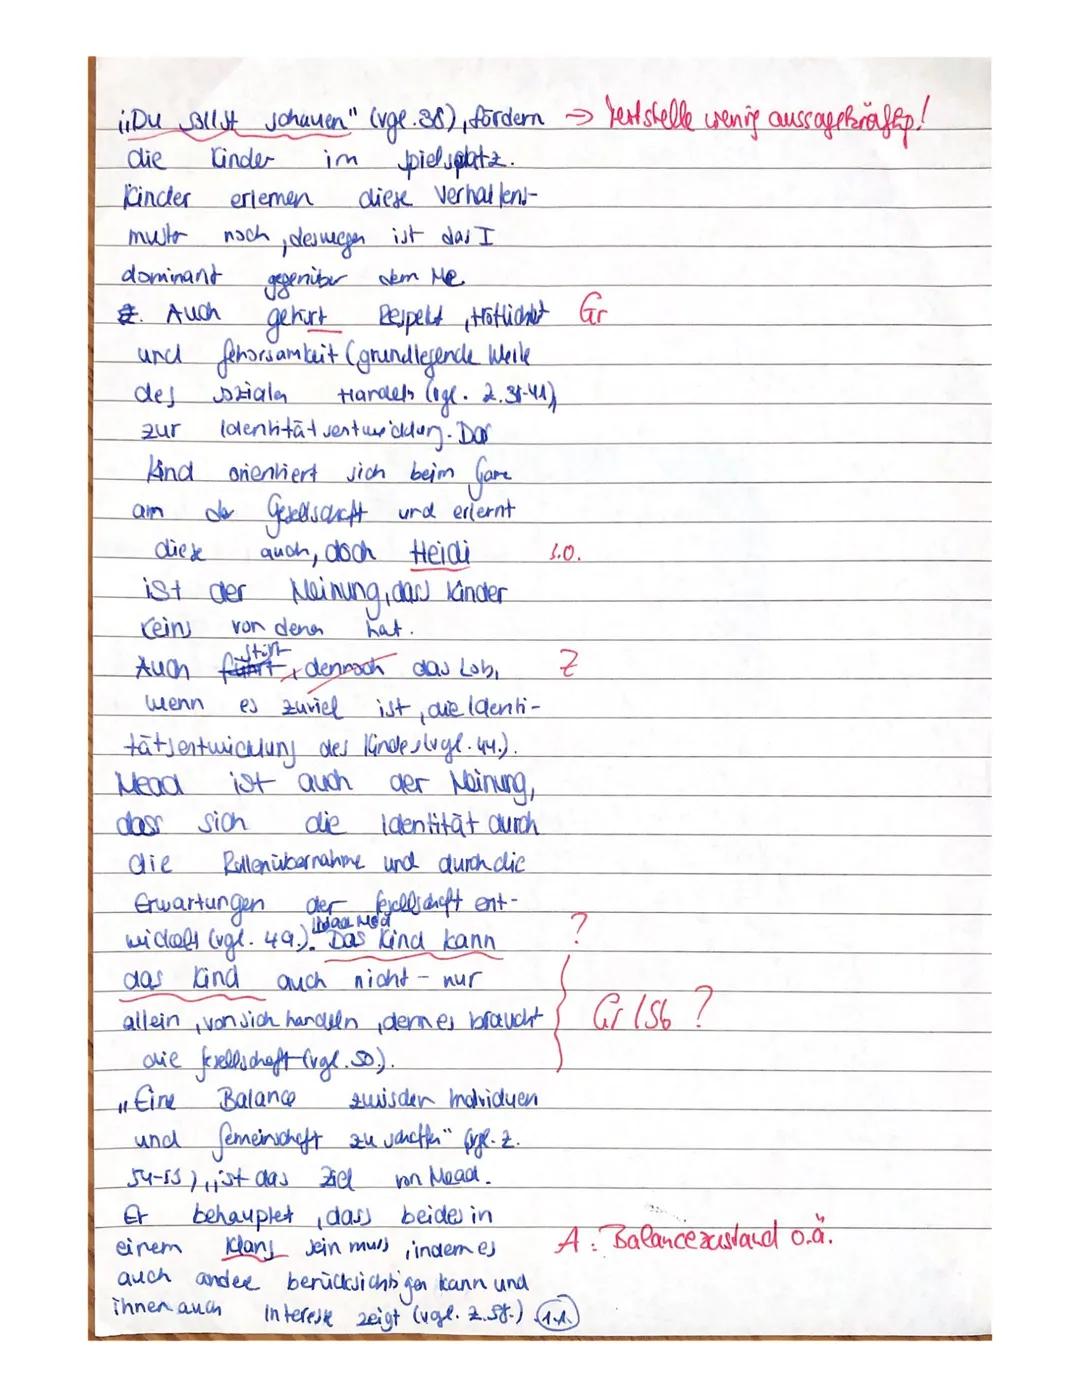 „Du sollst schauen" (vgl. 38), fördern → Textstelle wenig aussagekräftig!
die Kinder im Spielsplatz.
Kinder erlernen diese Verhaltens-
muster noch, deswegen ist das I
dominant gegenüber dem Me.
Auch gehört Respekt, Höflichkeit Gr
und Gehorsamkeit (grundlegende Werte
des sozialen Handeln (vgl. Z. 38-41)
zur Identitätsentwicklung. Das
Kind orientiert sich beim Game
an der Gesellschaft und erlernt
diese auch, doch Heidi s.o.
ist der Meinung, dass Kinder
keins von denen hat.
Auch führt stört, dennoch das Lob, Z
wenn es zuviel ist, die Identi-
tätsentwicklung des Kindes (vgl. 44.).
Mead ist auch der Meinung,
dass sich die Identität durch
die Rollenübernahme und durch die
Erwartungen der Gesellschaft ent-
wickelt (vgl. 49.). Das Kind kann ?
das Kind auch nicht - nur
allein, von sich handeln, denn es braucht Gr/Sb ?
die Gesellschaft (vgl. 50.).
„Eine Balance zwischen Individuen
und Gemeinschaft zu schaffen" (vgl. Z.
54-55), ist das Ziel von Mead.
Er behauptet, dass beides in
einem Klang sein muss, indem es A: Balancezustand o.ä.
auch andere berücksichtigen kann und
ihnen auch Interesse zeigt (vgl. Z. 58.)